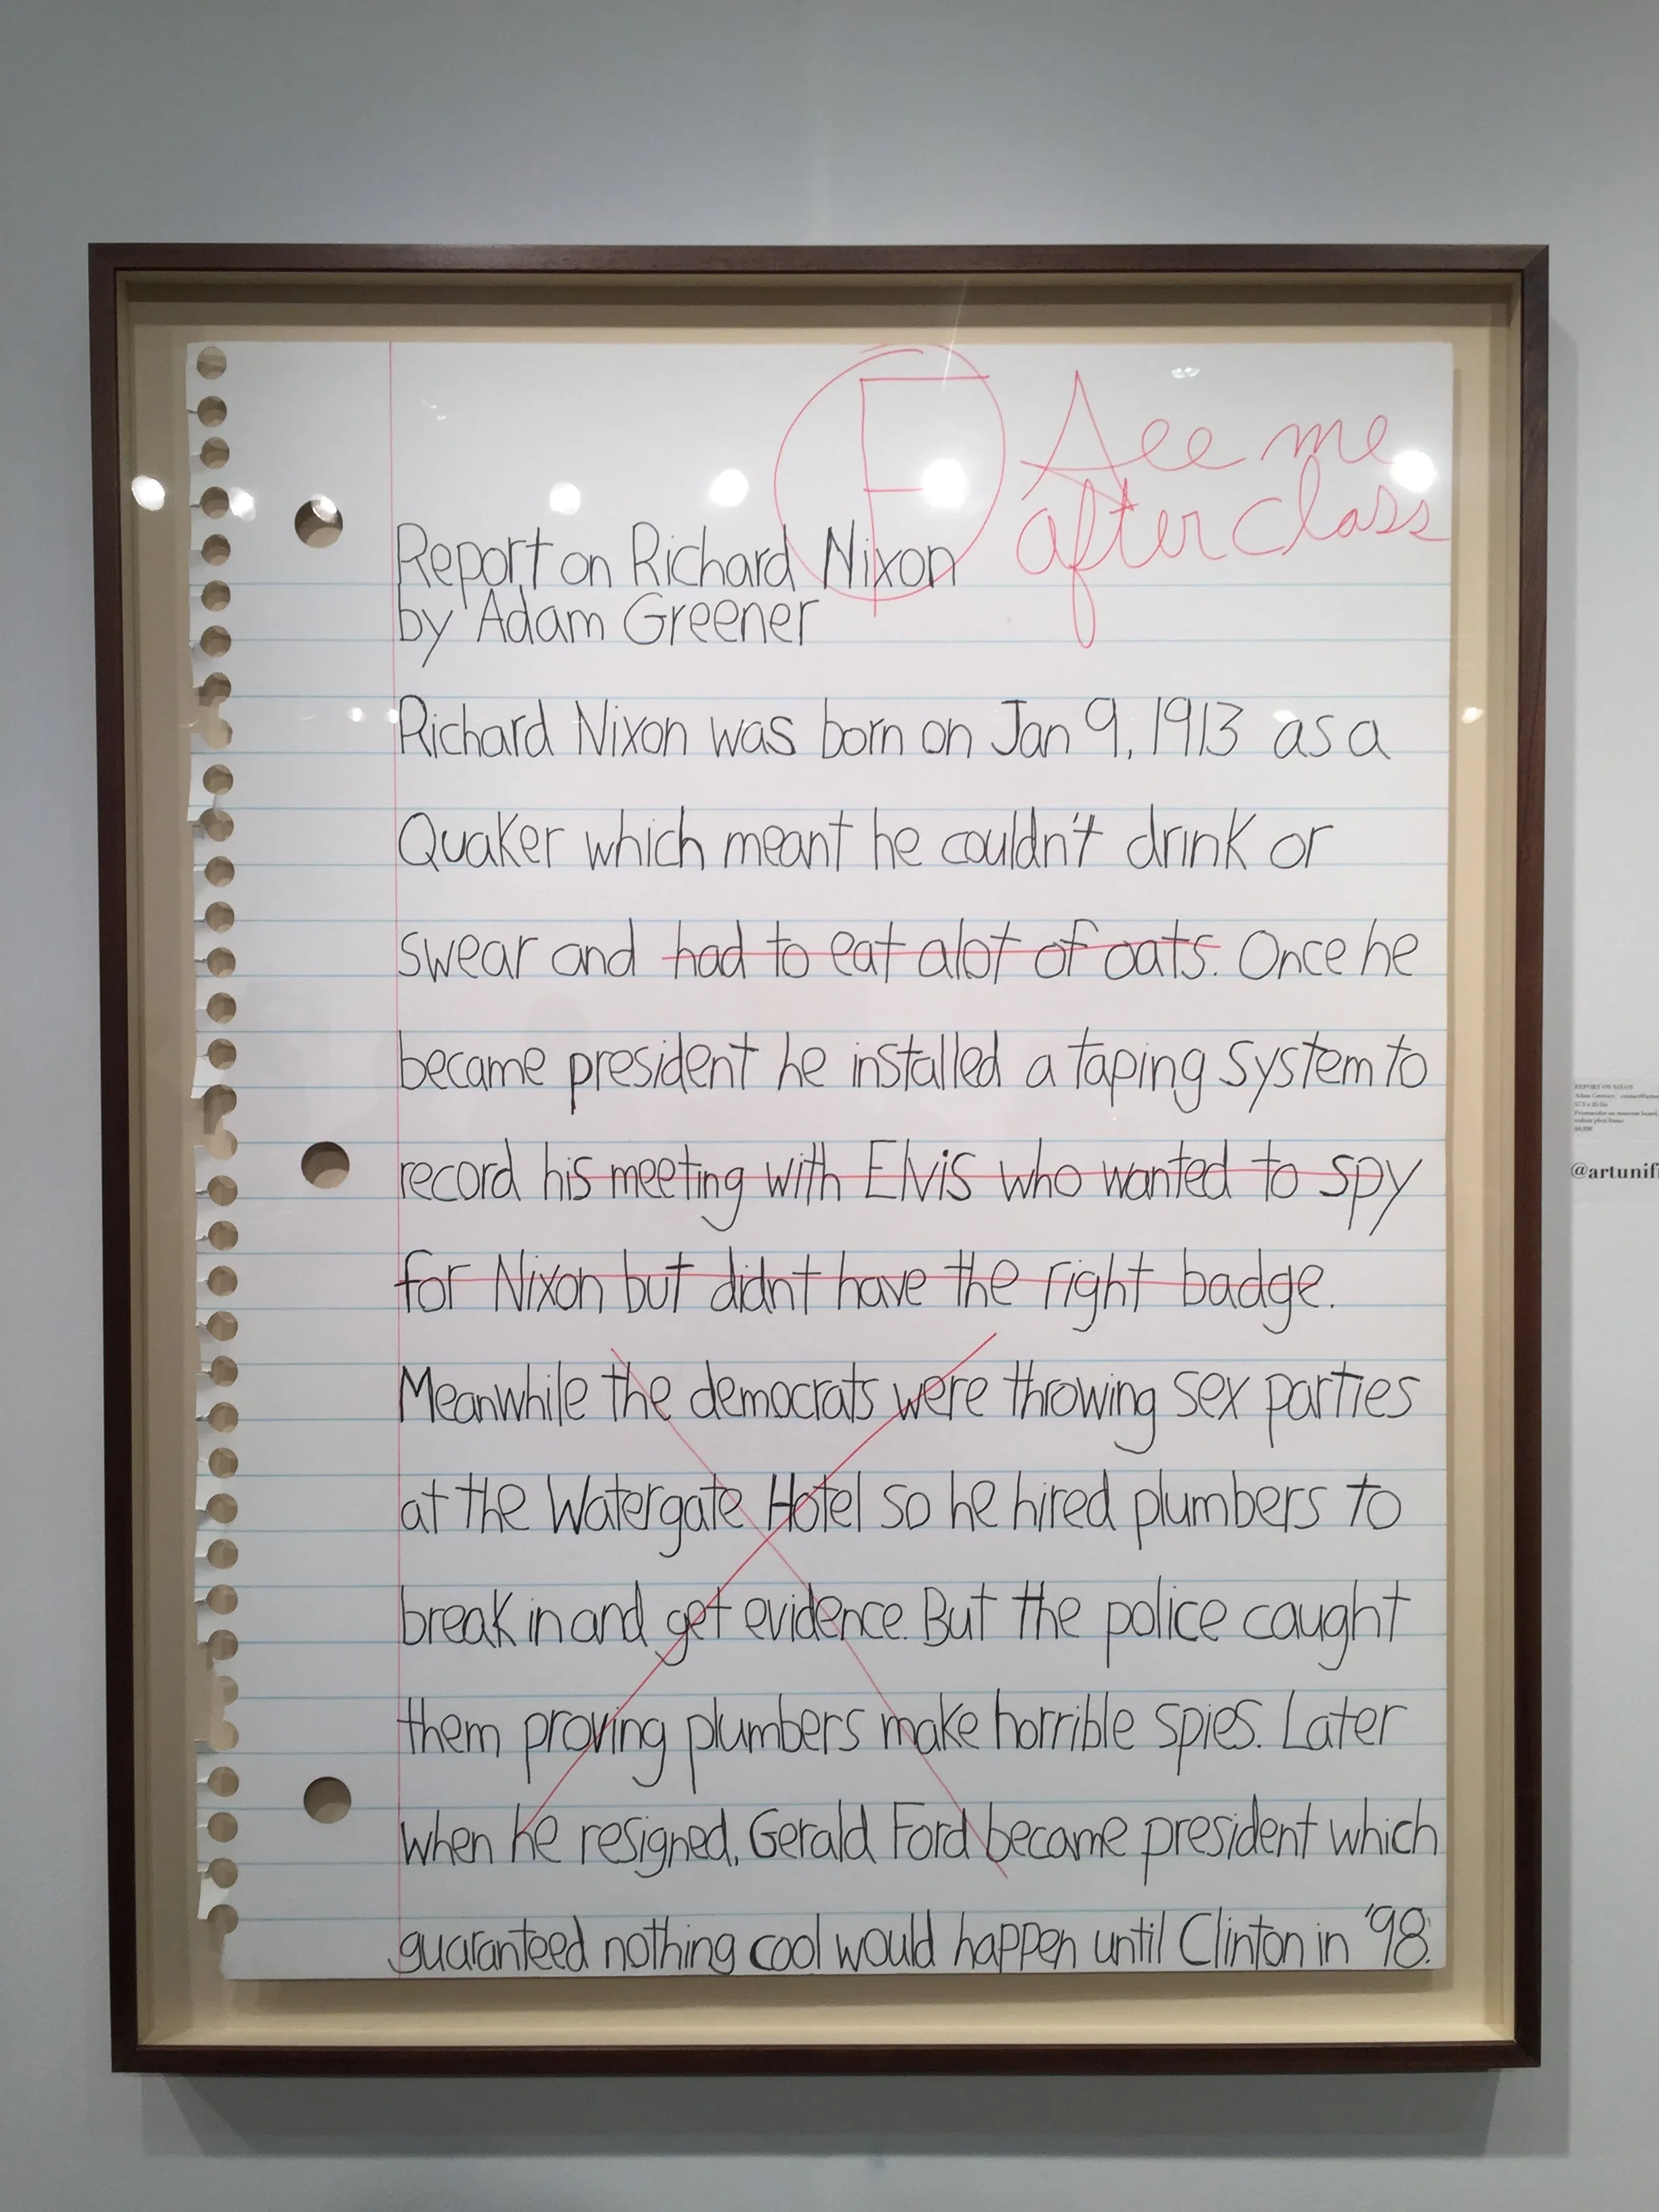 F
See me
after class
Report on Richard Nixon
by Adam Greener
Richard Nixon was born on Jan 9, 1913 as a
Quaker which meant he couldn't drink or
swear and had to eat alot of oats. Once he
became president he installed a taping system to
record his meeting with Elvis who wanted to spy
for Nixon but didnt have the right badge.
Meanwhile the democrats were throwing sex parties
at the Watergate Hotel so he hired plumbers to
break in and get evidence. But the police caught
them proving plumbers make horrible spies. Later
when he resigned, Gerald Ford became president which
guaranteed nothing cool would happen until Clinton in '98.
REPORT ON NIXON
Adam Greener,
@artunifi